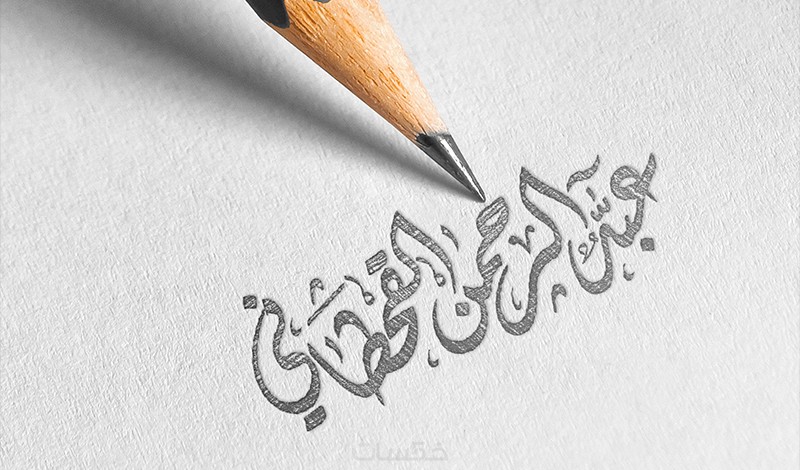 عبد الرحمن القحطاني
خمسات